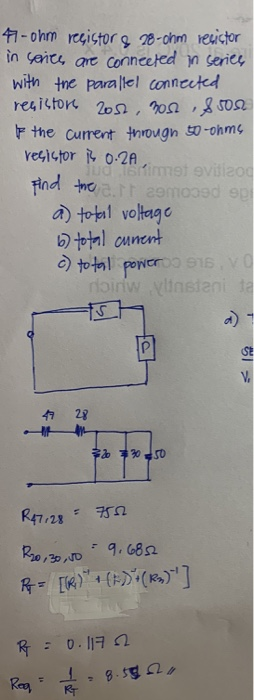 47-ohm resistor & 28-ohm resistor
in series are connected in series
with the parallel connected
resistors 20Ω, 30Ω, & 50Ω
If the current through 50-ohms
resistor is 0.2A,
Find the
a) total voltage
b) total current
c) total power
S
P
a)
47 28
20 30 50
R47,28 = 75Ω
R20,30,50 = 9.68Ω
RT = [(R1)⁻¹ + (R2)⁻¹ + (R3)⁻¹]
RT = 0.117 Ω
Req = 1/RT = 8.55 Ω //